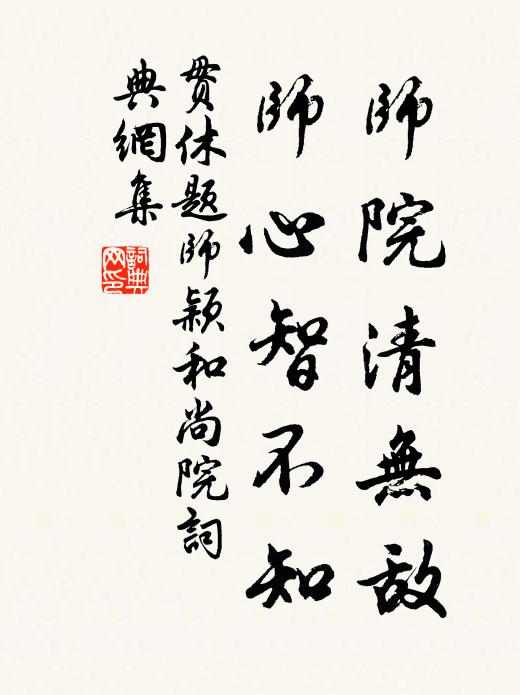 師院清無敵
師心智不知
貫休題師穎和尚院詞
典網集
詞典網印